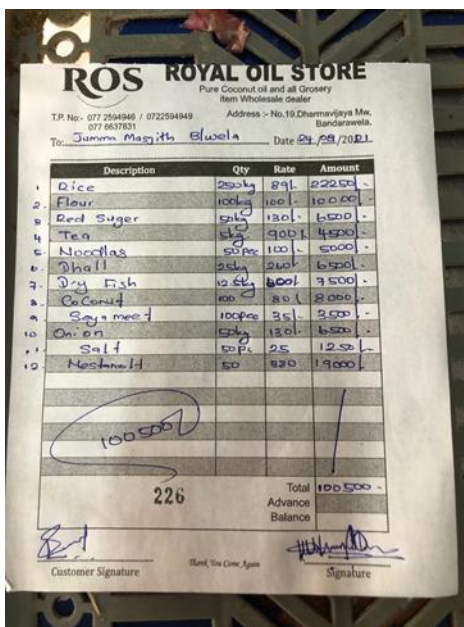 ROS ROYAL OIL STORE
Pure Coconut oil and all Grosery
item Wholesale dealer
T.P. No:- 077 2594946 / 0722594949
077 6637831
Address :- No.19,Dharmavijaya Mw,
Bandarawela.
To: Jumma Masjith B/wela Date 24/09/2021
Description Qty Rate Amount
1 Rice 250kg 89/- 22250/-
2. Flour 100kg 100/- 10000/-
3 Red Suger 50kg 130/- 6500/-
4 Tea 5kg 900/- 4500/-
5. Noodlas 50pcc 100/- 5000/-
6. Dhall 25kg 260/- 6500/-
7. Dry Fish 12.5kg 600/- 7500/-
8. CoConut 100 80/- 8000/-
9 Soya meet 100pcc 35/- 3500/-
10 Onion 50kg 130/- 6500/-
11 Salt 50Pc 25 1250/-
12. 50 380 19000/-
100500/
226
Total 100500-
Advance
Balance
Customer Signature
Thank You Come Again
Signature